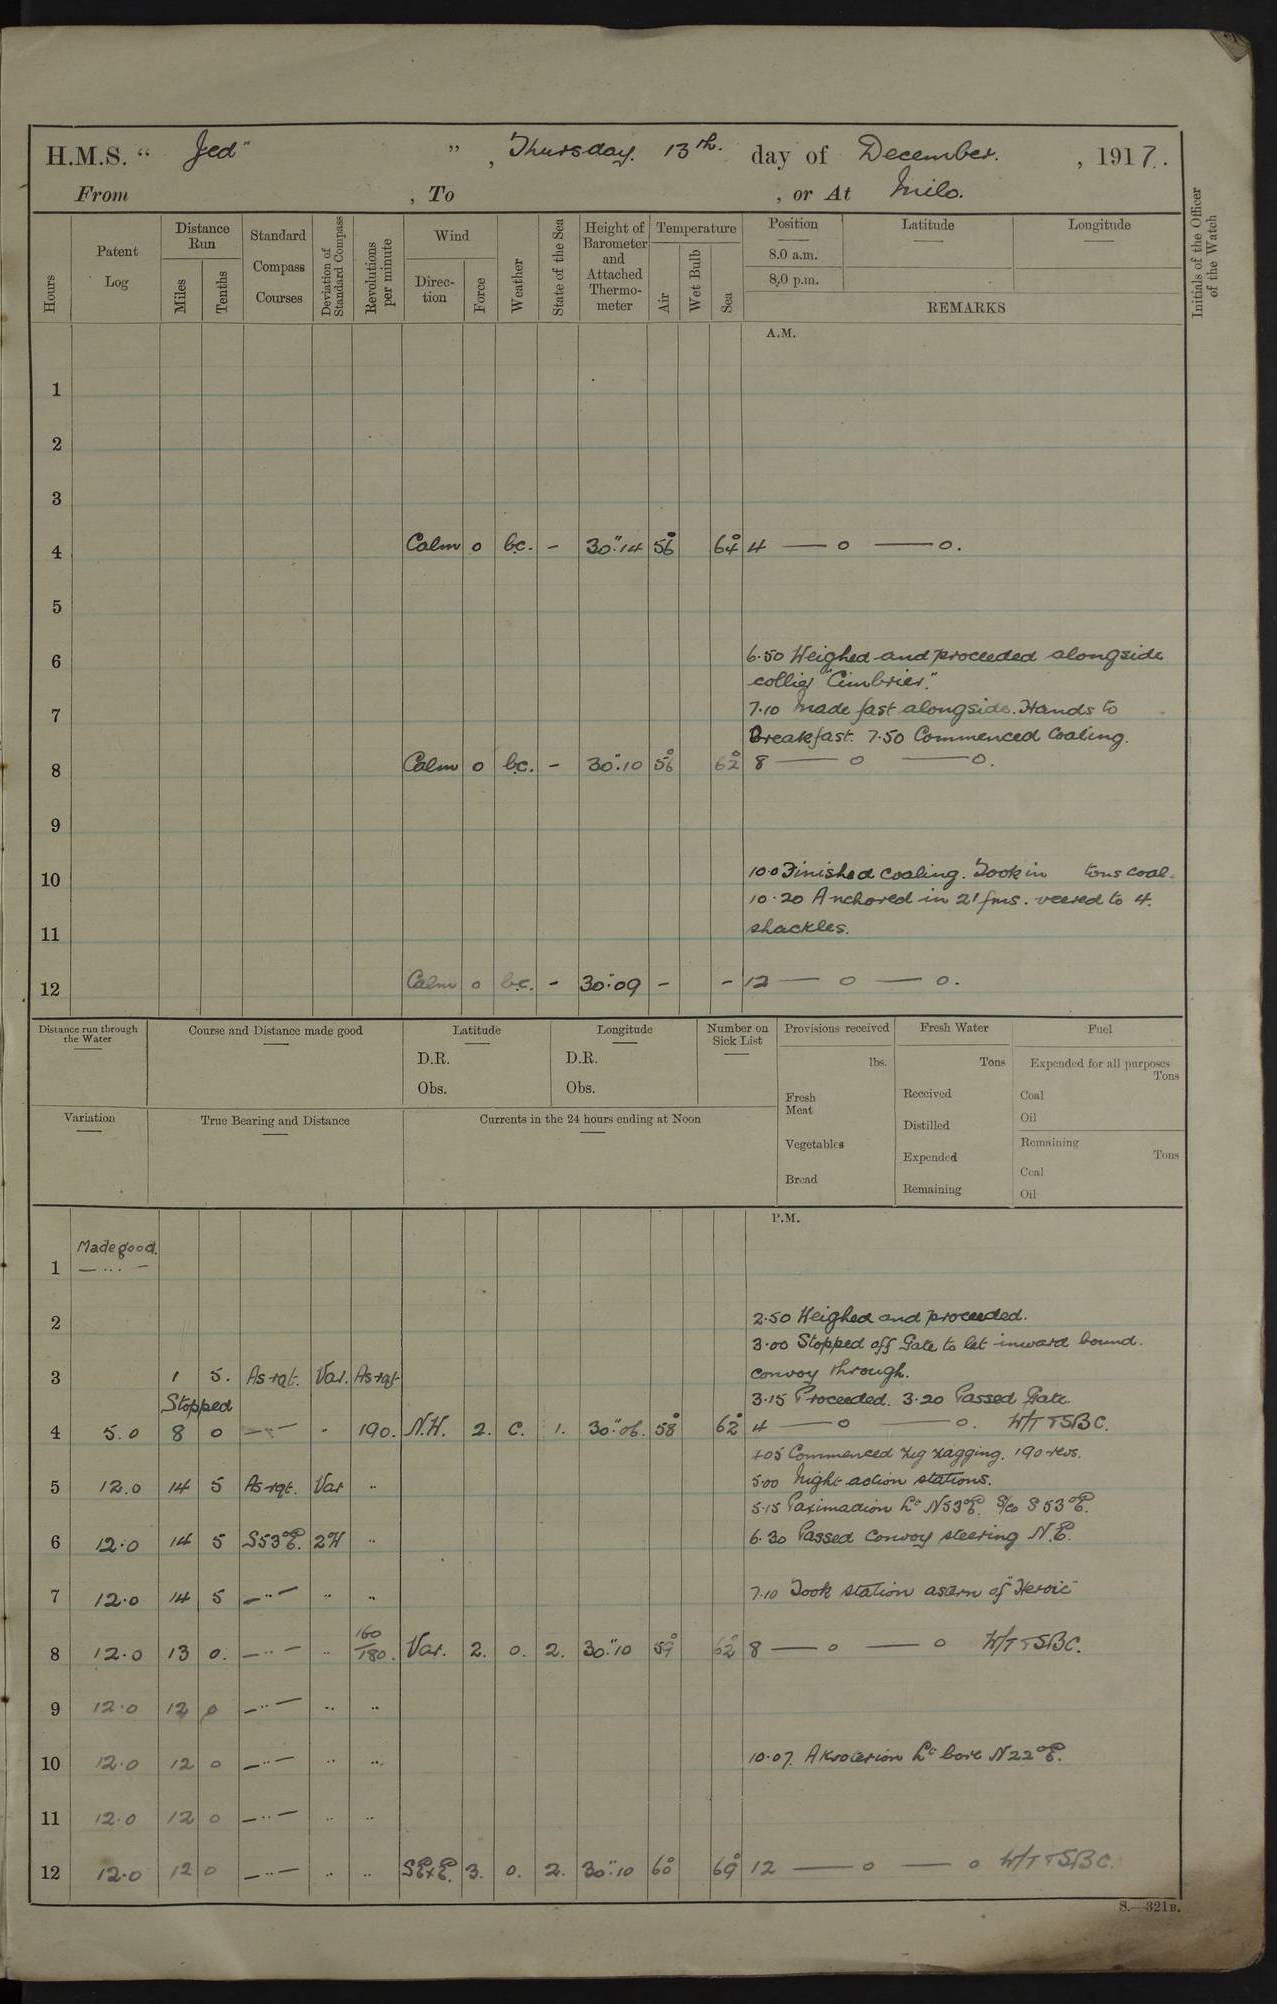 H.M.S. “ Jed” ” , Thursday. 13th. day of December. , 1917.
From , To , or At Milo.
Hours
Patent Log
Distance Run
Miles
Tenths
Standard Compass Courses
Deviation of Standard Compass
Revolutions per minute
Wind
Direction
Force
Weather
State of the Sea
Height of Barometer and Attached Thermo-meter
Temperature
Air
Wet Bulb
Sea
Position
8.0 a.m.
8.0 p.m.
Latitude
Longitude
REMARKS
Initials of the Officer of the Watch
A.M.
1
2
3
4 Calm 0 bc. - 30".14 56° 64° 4 — o — o.
5
6 6.50 Weighed and proceeded alongside
collier "Cimbrier."
7 7.10 Made fast alongside. Hands to
Breakfast. 7.50 Commenced Coaling.
8 Calm 0 bc. - 30".10 56° 62° 8 — o — o.
9
10 10.0 Finished coaling. Took in tons coal.
10.20 Anchored in 21 fms. veered to 4.
11 shackles.
12 Calm 0 bc. - 30".09 - - 12 — o — o.
Distance run through the Water
Course and Distance made good
Latitude
D.R.
Obs.
Longitude
D.R.
Obs.
Number on Sick List
Provisions received
lbs.
Fresh Meat
Vegetables
Bread
Fresh Water
Tons
Received
Distilled
Expended
Remaining
Fuel
Expended for all purposes
Tons
Coal
Oil
Remaining
Tons
Coal
Oil
Variation
True Bearing and Distance
Currents in the 24 hours ending at Noon
P.M.
Made good.
1 — ... —
2 2.50 Weighed and proceeded.
3.00 Stopped off Gate to let inward bound.
3 1 5. As rqt. Var. As rqt. convoy through.
Stopped 3.15 Proceeded. 3.20 Passed Gate.
4 5.0 8 0 — " — " 190. N.W. 2. c. 1. 30".06. 58° 62° 4 — o — o. W/T TSBC.
4.05 Commenced zig zagging. 190 revs.
5 12.0 14 5 As rqt. Var " 5.00 Night action stations.
5.15 Paximadion Lt N53°E. S/co S53°E.
6 12.0 14 5 S53°E. 2W " 6.30 Passed Convoy steering N.E.
7 12.0 14 5 — " — " " 7.10 Took station astern of "Heroic"
8 12.0 13 0. — " — " 160/180. Var. 2. o. 2. 30".10 59° 62° 8 — o — o W/T TSBC.
9 12.0 12 0 — " — " "
10 12.0 12 0 — " — " " 10.07. Akroterion Lt bore N22°E.
11 12.0 12 0 — " — " "
12 12.0 12 0 — " — " " SExE. 3. o. 2. 30".10 60° 69° 12 — o — o W/T TSBC.
S.—321B.